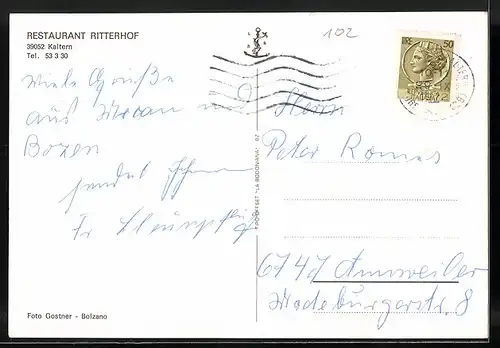 RESTAURANT RITTERHOF
39052 Kaltern
Tel. 53 3 30
102
50
Viele Grüße
aus Meran und
Bozen
sendet Ihnen
Fr.
Herrn
Peter Romas
6747 Annweiler
Madeburgerstr. 8
Foto Gostner - Bolzano